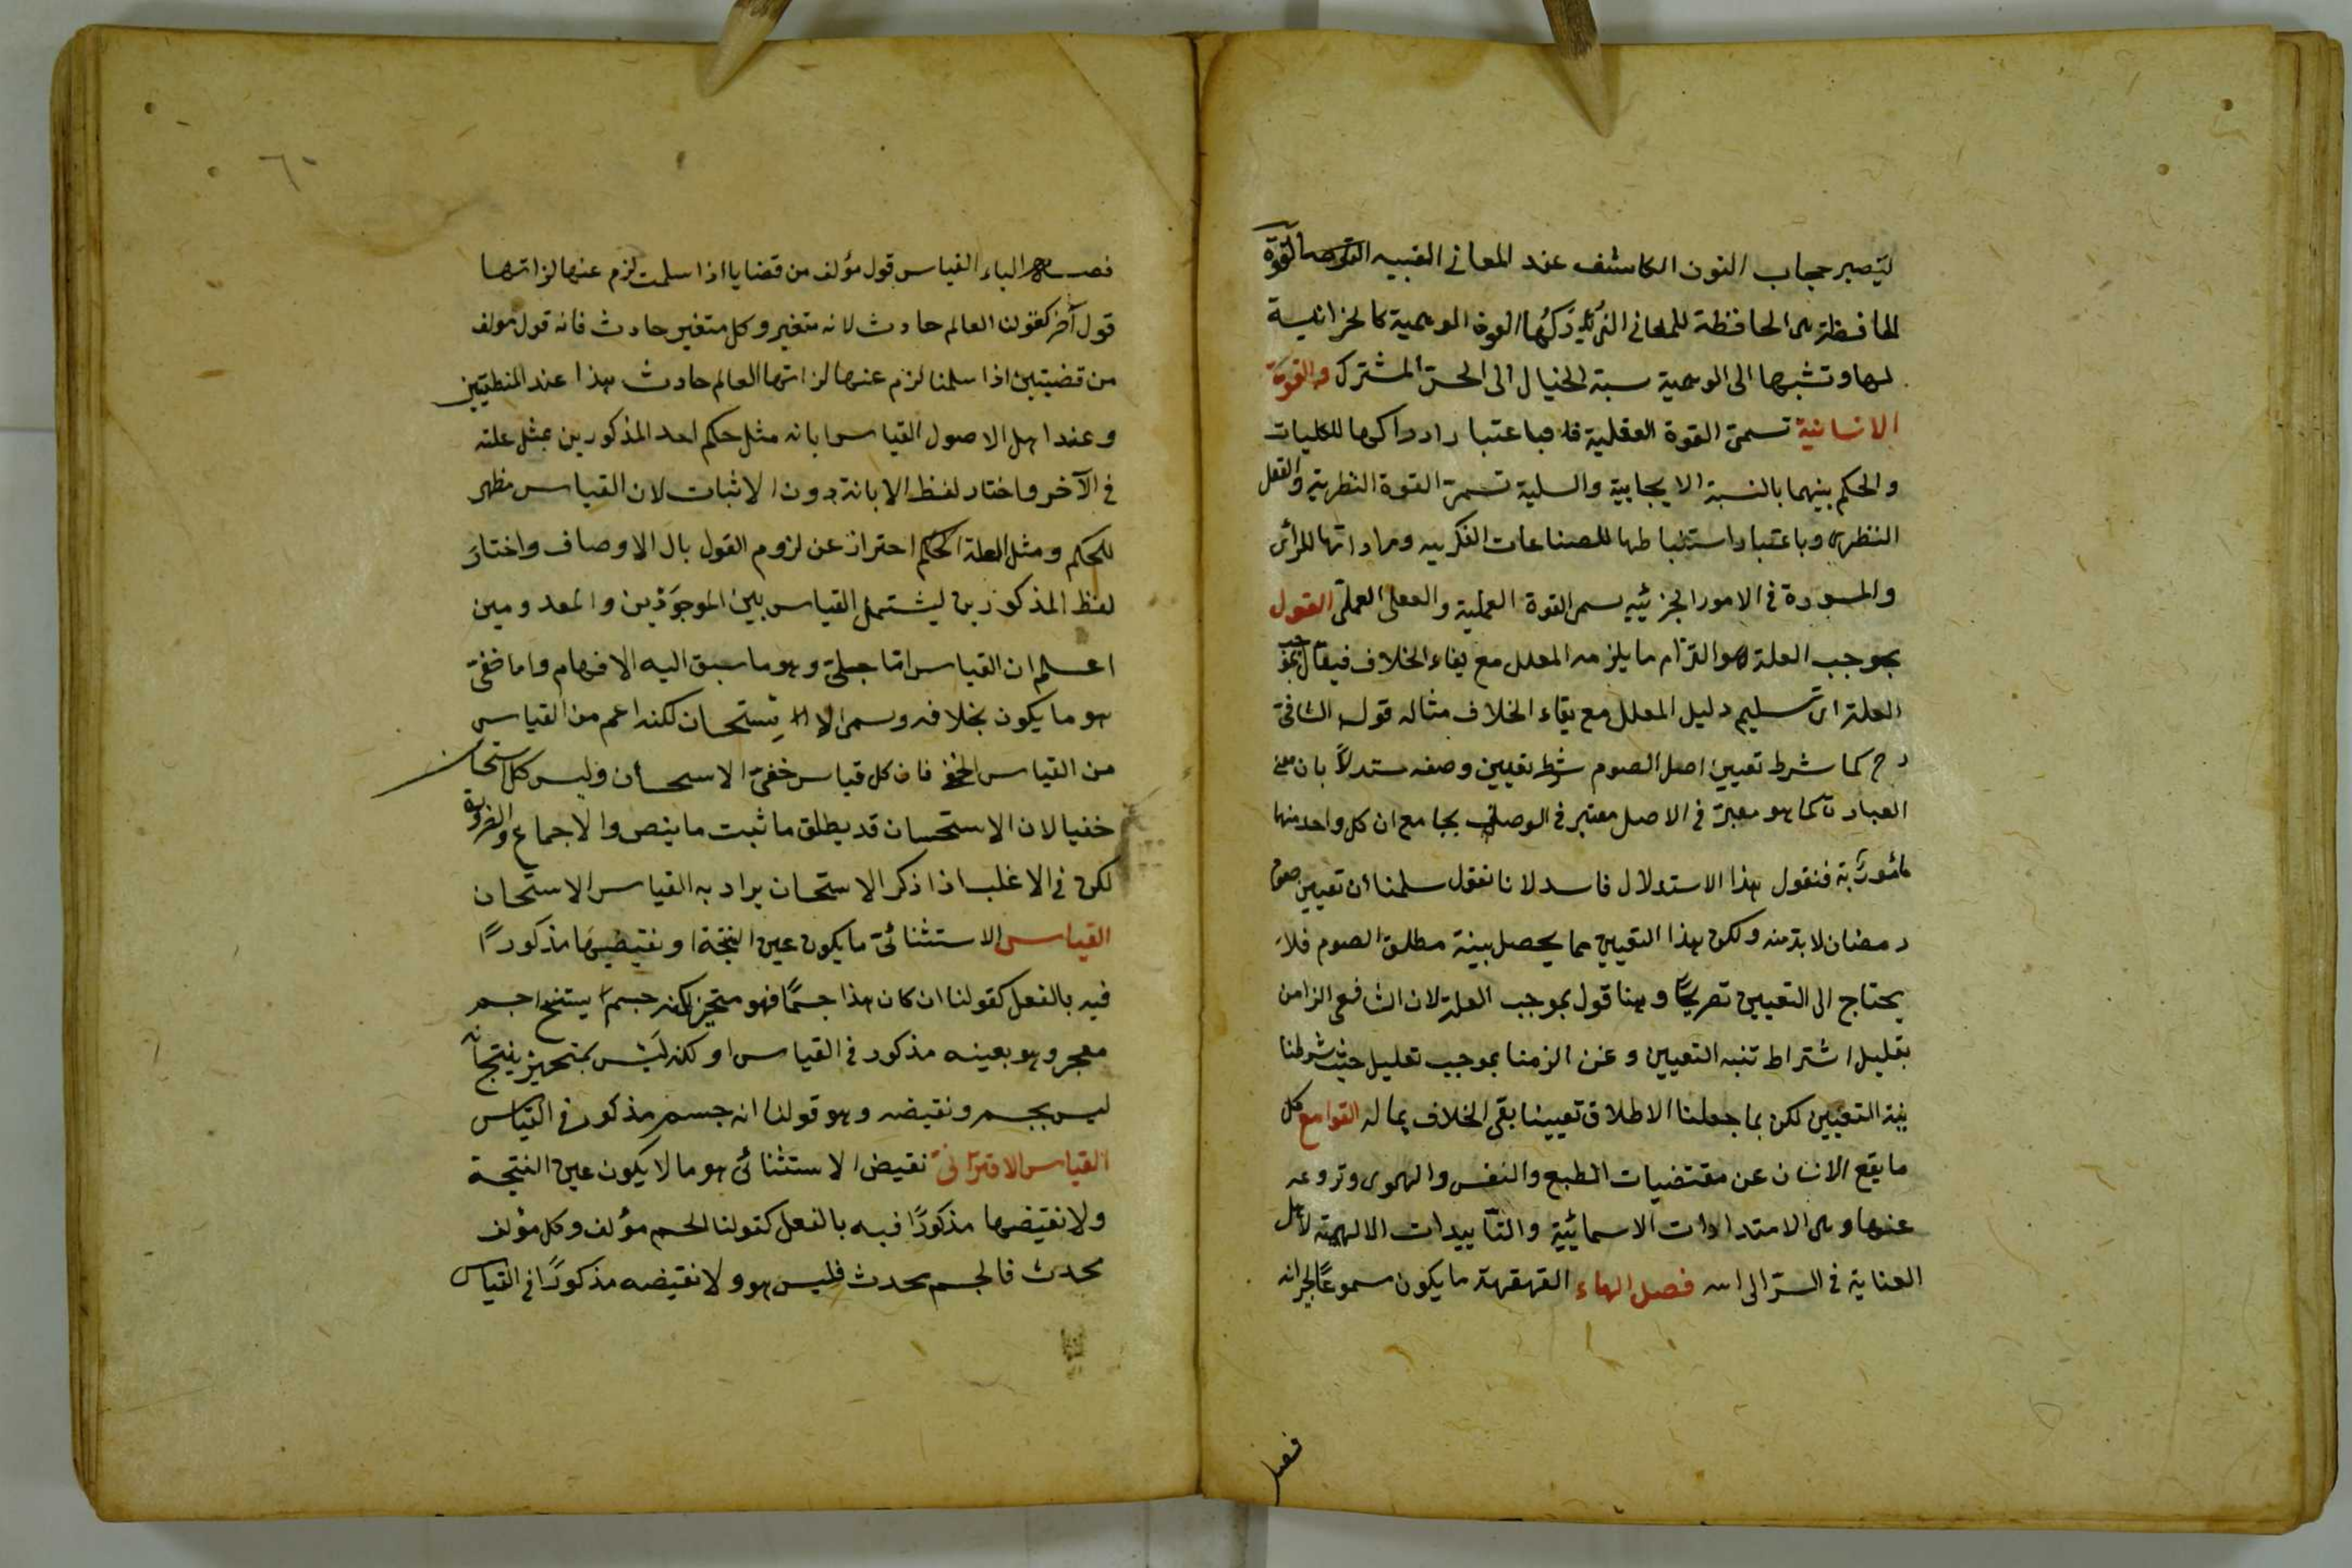 ليصير حجاب النون الكاشف عند المعانى الغيبيه القوة
الحافظة هى الحافظة للمعانى التى يدركها القوة الوهمية كالخزانة
لها ونسبتها الى الوهمية نسبة الخيال الى الحس المشترك والقوة
الانسانية تسمى القوة العقلية فباعتبار ادراكها للكليات
والحكم بينهما بالنسبة الايجابية والسلبية تسمى القوة النظرية والعقل
النظرى وباعتبار استنباطها للصناعات الفكريه ومزاولتها للرأى
والمسورة فى الامور الجزئيه يسمى القوة العملية والعقل العملى القول
بموجب العلة هو التزام ما يلزمه المعلل مع بقاء الخلاف فيقال بموجب
العلة اى تسليم دليل المعلل مع بقاء الخلاف مثاله قول الشافعى
رح كما شرط تعيين اصل الصوم شرط تعيين وصفه مستدلاً بان معنى
العبادة كما هو معتبر فى الاصل معتبر فى الوصف بجامع ان كل واحد منهما
مأمور به فنقول هذا الاستدلال فاسد لانا نقول سلمنا ان تعيين صوم
رمضان لا بد منه ولكن هذا التعيين مما يحصل بنية مطلق الصوم فلا
يحتاج الى التعيين تصريحًا وهنا قول بموجب العلة لان الشافعى الزامن
بتعليل اشتراط نية التعيين ونحن الزمنا بموجب تعليل حيث شرطنا
نية التعيين لكن بما جعلنا الاطلاق تعيينا بقى الخلاف بحاله القوامع كل
ما يقع الانسان عن مقتضيات الطبع والنفس والهوى وتروعه
عنها وهى الامتدادات الاسمائية والتأييدات الالهية لاهل
العناية فى السر الى الله فصل الهاء القهقهة ما يكون مسموعًا لجيرانه
فصل
٦٠
فصل الياء القياس قول مؤلف من قضايا اذا سلمت لزم عنها لذاتها
قول آخر كقولنا العالم حادث لانه متغير وكل متغير حادث فانه قول مولف
من قضيتين اذا سلمنا لزم عنها لذاتها العالم حادث هذا عند المنطقيين
وعند اهل الاصول القياس ابانه مثل حكم احد المذكورين بمثل علته
فى الآخر واختار لفظ الابانة دون الاثبات لان القياس مظهر
للحكم ومثل العلة الحكم احتراز عن لزوم القول بال الاوصاف واختار
لفظ المذكورين ليشتمل القياس بين الموجودين والمعدومين
اعلم ان القياس اما جلى وهو ما سبق اليه الافهام واما خفى
هو ما يكون بخلافه وسمى الاستحسان لكنه اعم من القياس
من القياس الخفى فان كل قياس خفى الاسحسان وليس كل استحسان
خفيا لان الاستحسان قد يطلق ما ثبت ما ينص والاجماع والضرورة
لكن فى الاغلب اذا ذكر الاستحسان يراد به القياس الاستحسان
القياس الاستثنائى ما يكون عين النتيجة او نقيضها مذكورًا
فيه بالفعل كقولنا ان كان هذا جسمًا فهو متحيز لكنه جسم ينتج
وهو بعينه مذكور فى القياس او لكنه ليس بمتحيز ينتج انه
ليس بجسم ونقيضه وهو قولنا انه جسم مذكور فى القياس
القياس الاقترانى نقيض الاستثنائى هو ما لا يكون عين النتيجة
ولا نقيضها مذكورًا فيه بالفعل كقولنا الجسم مؤلف وكل مؤلف
محدث فالجسم محدث فليس هو ولا نقيضه مذكورًا فى القياس